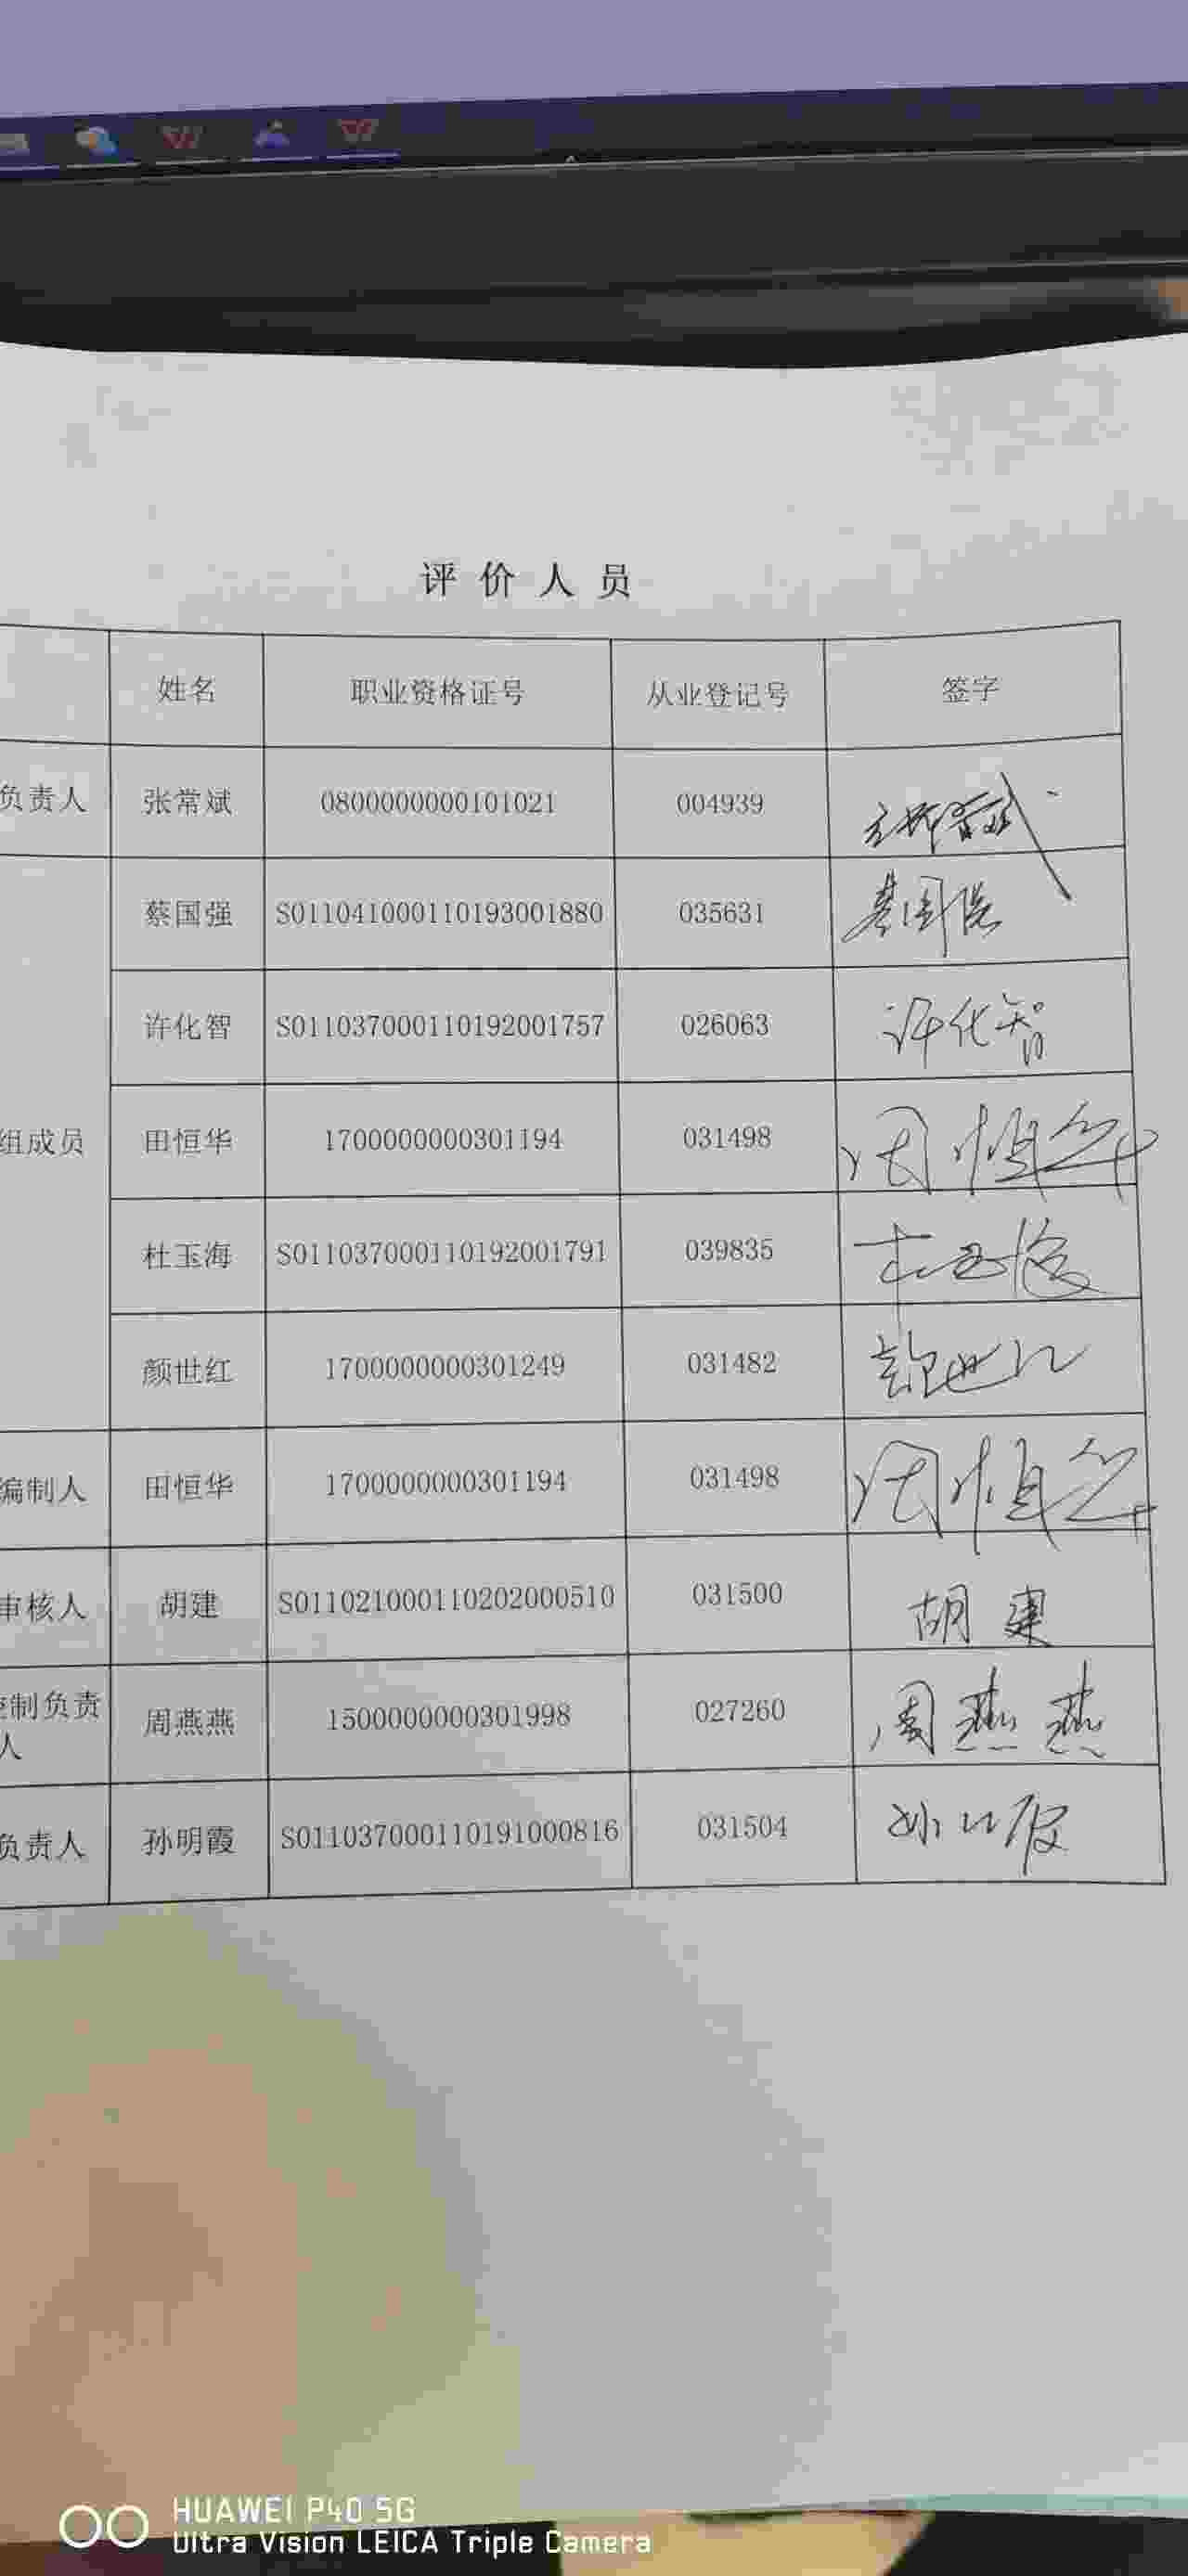 评价人员
姓名 职业资格证号 从业登记号 签字
负责人 张常斌 0800000000101021 004939
蔡国强 S011041000110193001880 035631
许化智 S011037000110192001757 026063 许化智
组成员 田恒华 1700000000301194 031498
杜玉海 S011037000110192001791 039835 杜玉海
颜世红 1700000000301249 031482 颜世红
编制人 田恒华 1700000000301194 031498
审核人 胡建 S011021000110202000510 031500 胡建
控制负责
人 周燕燕 1500000000301998 027260 周燕燕
负责人 孙明霞 S011037000110191000816 031504
HUAWEI P40 5G
Ultra Vision LEICA Triple Camera